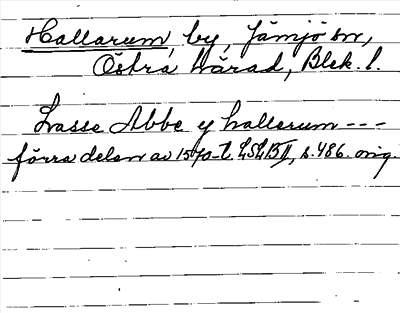 Hallarum, by, Jämjö sn,
Östra härad, Blek. l.
Lasse Abbe y hallarum ---
förra delen av 1570-t. LSLBII, s. 486. orig.